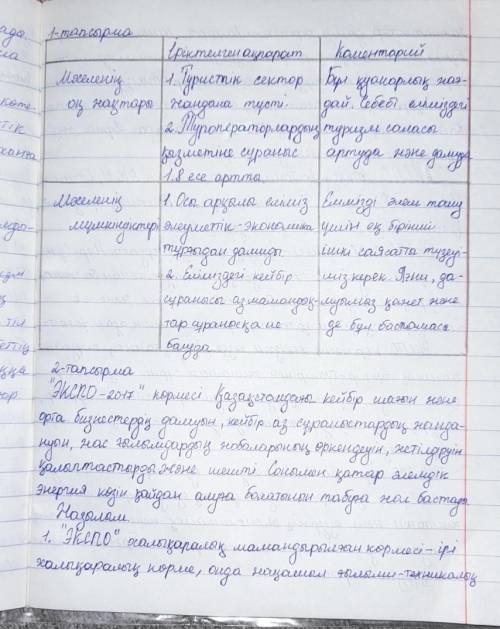 1-тапсырма
Іріктелген ақпарат
Коментарий
Мәселенің
оң жақтары
1. Туристік сектор
жандана түсті
2. Туроператорлардың
қызметіне сұраныс
1.8 есе артты
Бұл қуанарлық жағ-
дай. Себебі еліміздегі
туризм саласы
артуда және дамуда
Мәселенің
мүмкіндіктері
1. Осы арқылы еліміз
әлеуметтік-экономика
тұрғыдан дамиды
2. Еліміздегі кейбір
сұранысы аз мамандық-
тар сұранысқа ие
болуда
Елімізді әлем тану
үшін ең бірінші
ішкі саясатты түзеуі-
міз керек. Яғни, да-
муымыз қажет және
де бұл бастамасы
2-тапсырма
"ЭКСПО-2017" көрмесі Қазақстандағы кейбір шағын және
орта бизнестердің дамуын, кейбір аз сұраныстардың жанда-
нуын, жас ғылымдардың жобаларының өркендеуін, жетілдіруін
қалыптастырды және шешті. Сонымен қатар әлемдік
энергия көзін қайдан алуға болатынын табуға жол бастады
1. "ЭКСПО" халықаралық мамандырылған көрмесі - ірі
халықаралық көрме, онда ғылыми-техникалық